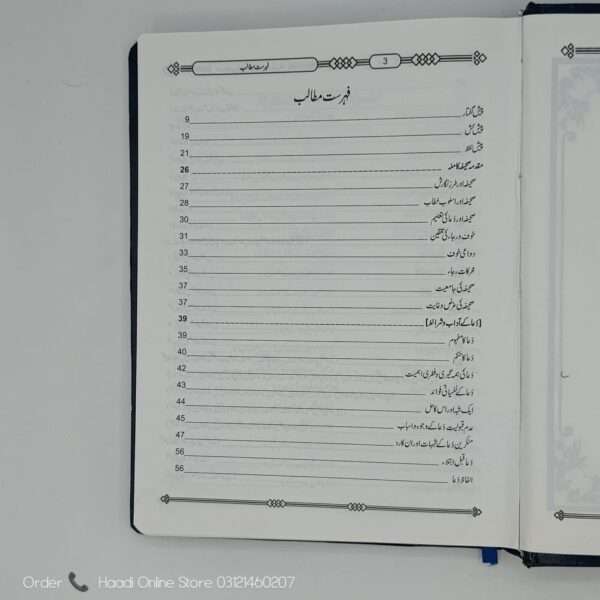 فہرست مطالب 3
فہرست مطالب
پیش گفتار 9
پیش حق 19
پیش لفظ 21
مقدمہ صحیفہ کاملہ 26
صحیفہ اور طرز نگارش 27
صحیفہ اور اسلوب خطاب 28
صحیفہ اور دعائی تعلیم 30
خوف و رجا کی تلقین 31
دواعی خوف 33
محرکات رجاء 35
صحیفہ کی جامعیت 37
صحیفہ کی غرض و غایت 37
[دعا کے آداب و شرائط] 39
دعا کا مفہوم 39
دعا کا حکم 40
دعا کی ہمہ گیری و فطری اہمیت 42
دعا کے نفسیاتی فوائد 43
ایک شبہ اور اس کا حل 44
عدم قبولیت دعا کے وجوہ و اسباب 45
منکرین دعا کے شبہات اور ان کا رد 47
دعا قبل ابتلاء 56
الفاظ دعا 56
Order Haadi Online Store 03121460207